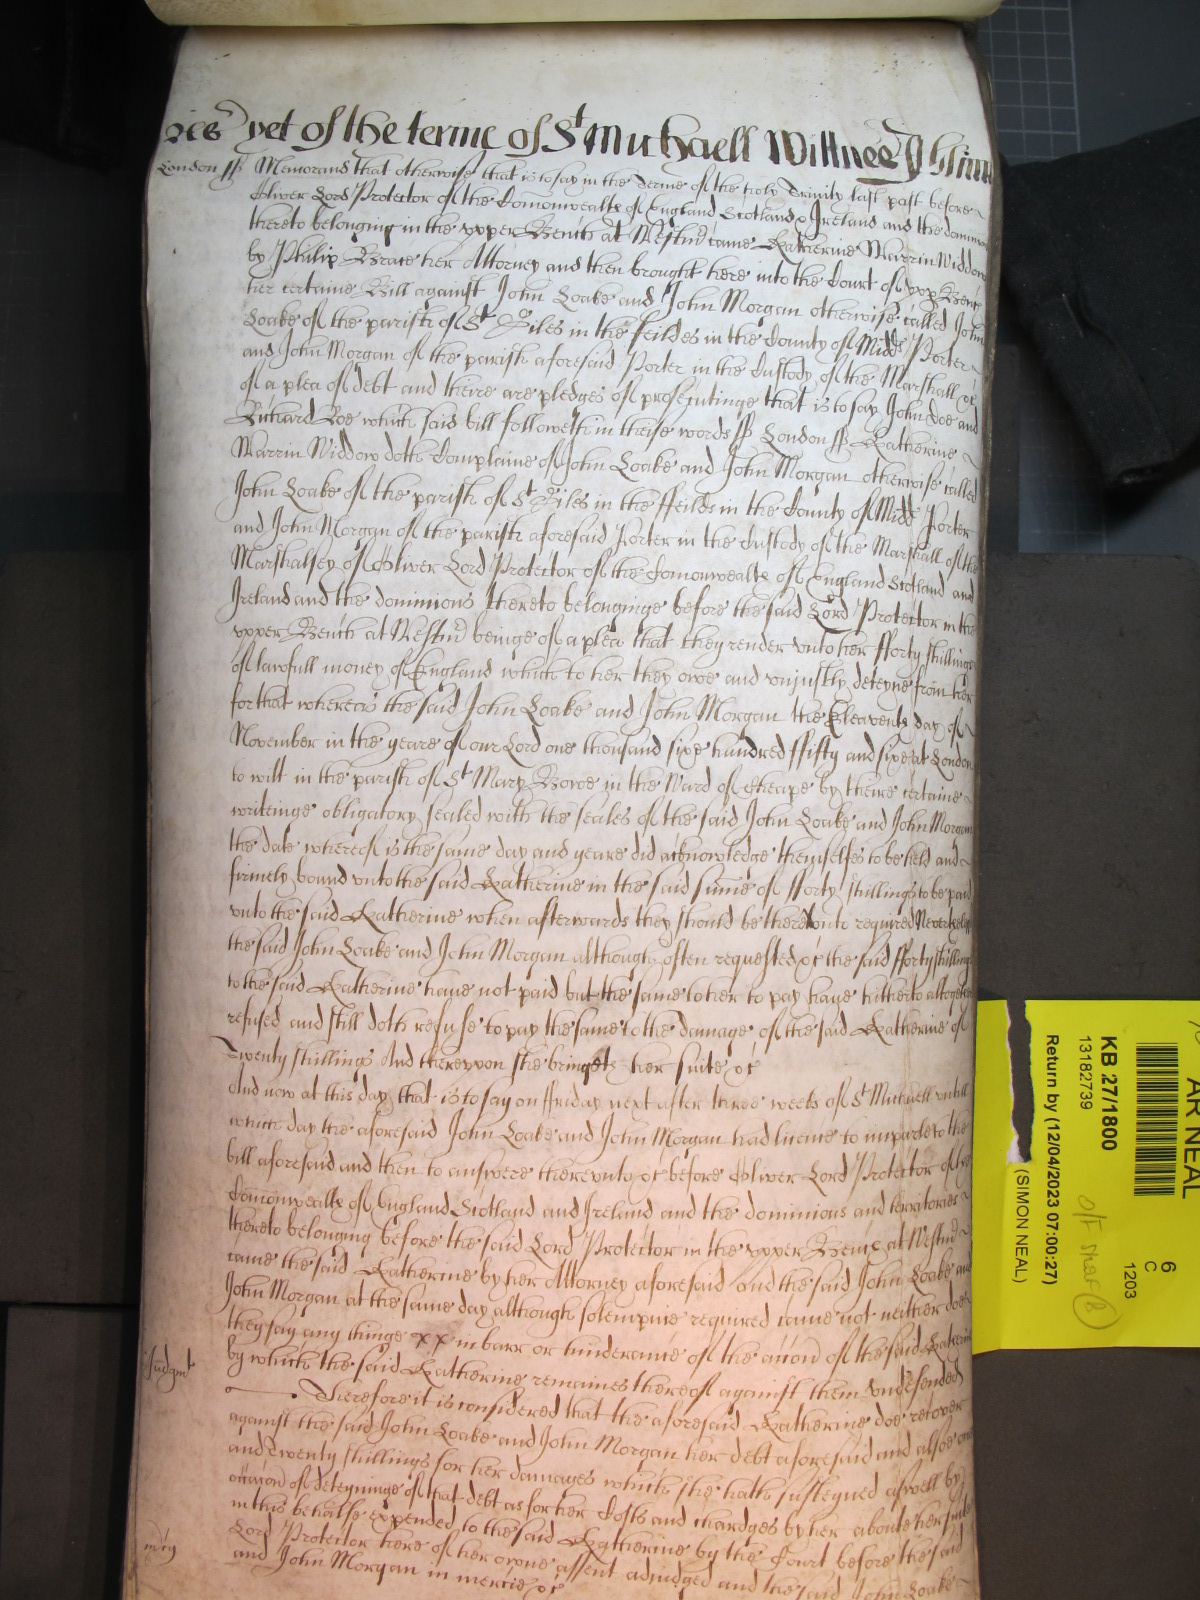 yet of the terme of St Michaell Wittnes
London ss Memorand that otherwise that is to say in the Terme of the holy Trinity last past before
Oliver Lord Protector of the Comonwealth of England Scotland & Ireland and the dominions
thereto belonging in the upper Bench at Westmr came Katherine Warrin Widdow
by Philip Brace her Attorney and then brought here into the Court of upp Bench
her certaine Bill against John Loake and John Morgan otherwise called John
Loake of the parish of St Giles in the feildes in the County of Midds Porter
and John Morgan of the parish aforesaid Porter in the Custody of the Marshall &c
of a plea of debt and theire are pledges of prosecutinge that is to say John Doe and
Richard Roe which said bill followeth in theise words ss London ss Katherine
Warrin Widdow doth Complaine of John Loake and John Morgan otherwise called
John Loake of the parish of St Giles in the ffeilds in the County of Midds Porter
and John Morgan of the parish aforesaid Porter in the Custody of the Marshall of the
Marshalsey of Oliver Lord Protector of the Comonwealth of England Scotland and
Ireland and the dominions thereto belonginge before the said Lord Protector in the
upper Bench at Westmr beinge of a plea that they render unto her fforty shillings
of lawfull money of England which to her they owe and unjustly deteyne from her
for that whereas the said John Loake and John Morgan the Eleaventh day of
November in the yeare of our Lord one thousand sixe hundred ffifty and sixe at London
to witt in the parish of St Mary Bowe in the Ward of Cheape by theire certaine
writeinge obligatory sealed with the seales of the said John Loake and John Morgan
the date whereof is the same day and yeare did acknowledge themselfes to be held and
firmely bound unto the said Katherine in the said summe of fforty shillings to be paid
unto the said Katherine when afterwards they should be thereunto required Neverthelesse
the said John Loake and John Morgan although often requested &c the said fforty shillings
to the said Katherine have not paid but the same to her to pay have hitherto altogether
refused and still doth refuse to pay the same to the damage of the said Katherine of
Twenty shillings And thereupon she bringeth her suite &c
And now at this day that is to say on ffriday next after three weeks of St Michaell untill
which day the aforesaid John Loake and John Morgan had licence to imparle to the
bill aforesaid and then to answere thereunto &c before Oliver Lord Protector of the
Comonwealth of England Scotland and Ireland and the dominions and territories
thereto belonging before the said Lord Protector in the upper Bench at Westmr
came the said Katherine by her Attorney aforesaid and the said John Loake and
John Morgan at the same day although solempnie required came not neither doe
they say any thinge in barr or hinderance of the accon of the said Katherine
by which the said Katherine remaines thereof against them undefended
Judgmt
Therefore it is considered that the aforesaid Katherine doe recover
against the said John Loake and John Morgan her debt aforesaid and alsoe one
and Twenty shillings for her damages which she hath susteyned aswell by
occacon of deteyninge of that debt as for her Costs and chardges by her aboute her suite
in this behalfe expended to the said Katherine by the Court before the said
Lord Protector here of her owne assent adiudged and the said John Loake
mcy
and John Morgan in mercie &c
AR NEAL
KB 27/1800
13182739
Return by (12/04/2023 07:00:27)
(SIMON NEAL)
6
C
1203